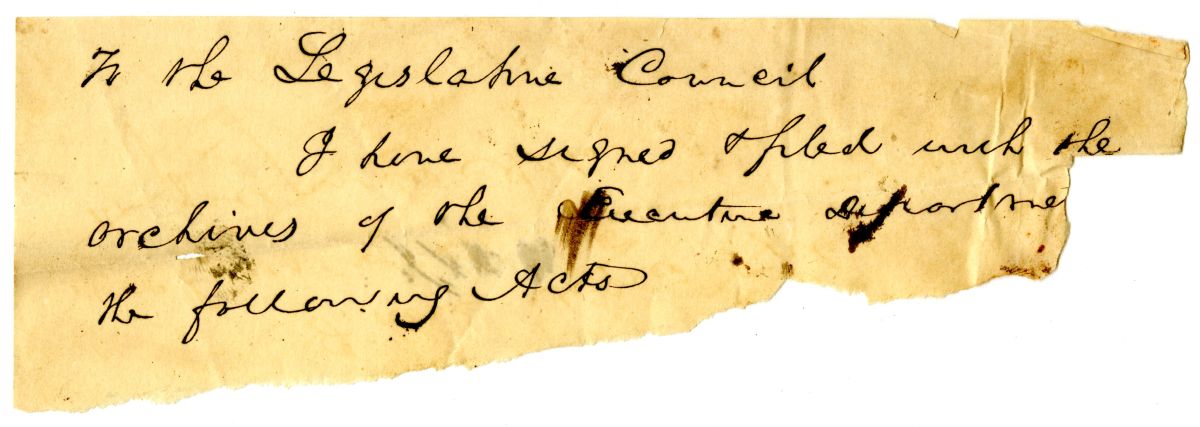 To the Legislative Council
I have signed & filed with the
archives of the Executive departme
the following Acts